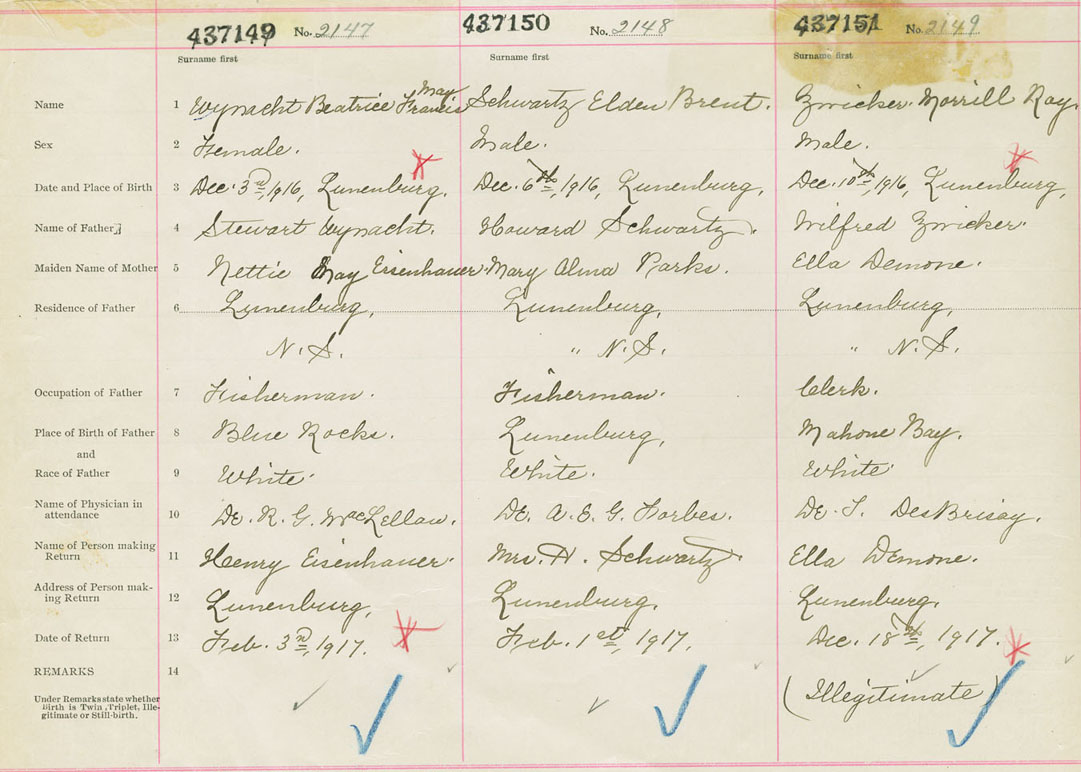 437149 No. 2147 437150 No. 2148 437151 No. 2149
Surname first Surname first Surname first
May
Name 1 Wynacht Beatrice Francis Schwartz Elden Brent. Zwicker Morrill Ray.
Sex 2 Female. Male. Male.
Date and Place of Birth 3 Dec. 3rd, 1916, Lunenburg. Dec. 6th, 1916, Lunenburg, Dec. 10th, 1916, Lunenburg,
Name of Father 4 Stewart Wynacht. Howard Schwartz. Wilfred Zwicker.
Maiden Name of Mother 5 Nettie May Eisenhauer. Mary Alma Parks. Ella Demone.
Residence of Father 6 Lunenburg, Lunenburg, Lunenburg,
N.S. " N.S. " N.S.
Occupation of Father 7 Fisherman. Fisherman. Clerk.
Place of Birth of Father 8 Blue Rocks. Lunenburg, Mahone Bay.
and
Race of Father 9 White. White. White
Name of Physician in
attendance 10 Dr. R. G. MacLellan. Dr. A. E. G. Forbes. Dr. T. DesBrisay.
Name of Person making
Return 11 Henry Eisenhauer. Mrs. H. Schwartz. Ella Demone.
Address of Person mak-
ing Return 12 Lunenburg, Lunenburg. Lunenburg.
Date of Return 13 Feb. 3rd, 1917. Feb. 1st, 1917. Dec. 18th, 1917.
REMARKS 14
(Illegitimate)
Under Remarks state whether
Birth is Twin, Triplet, Ille-
gitimate or Still-birth.